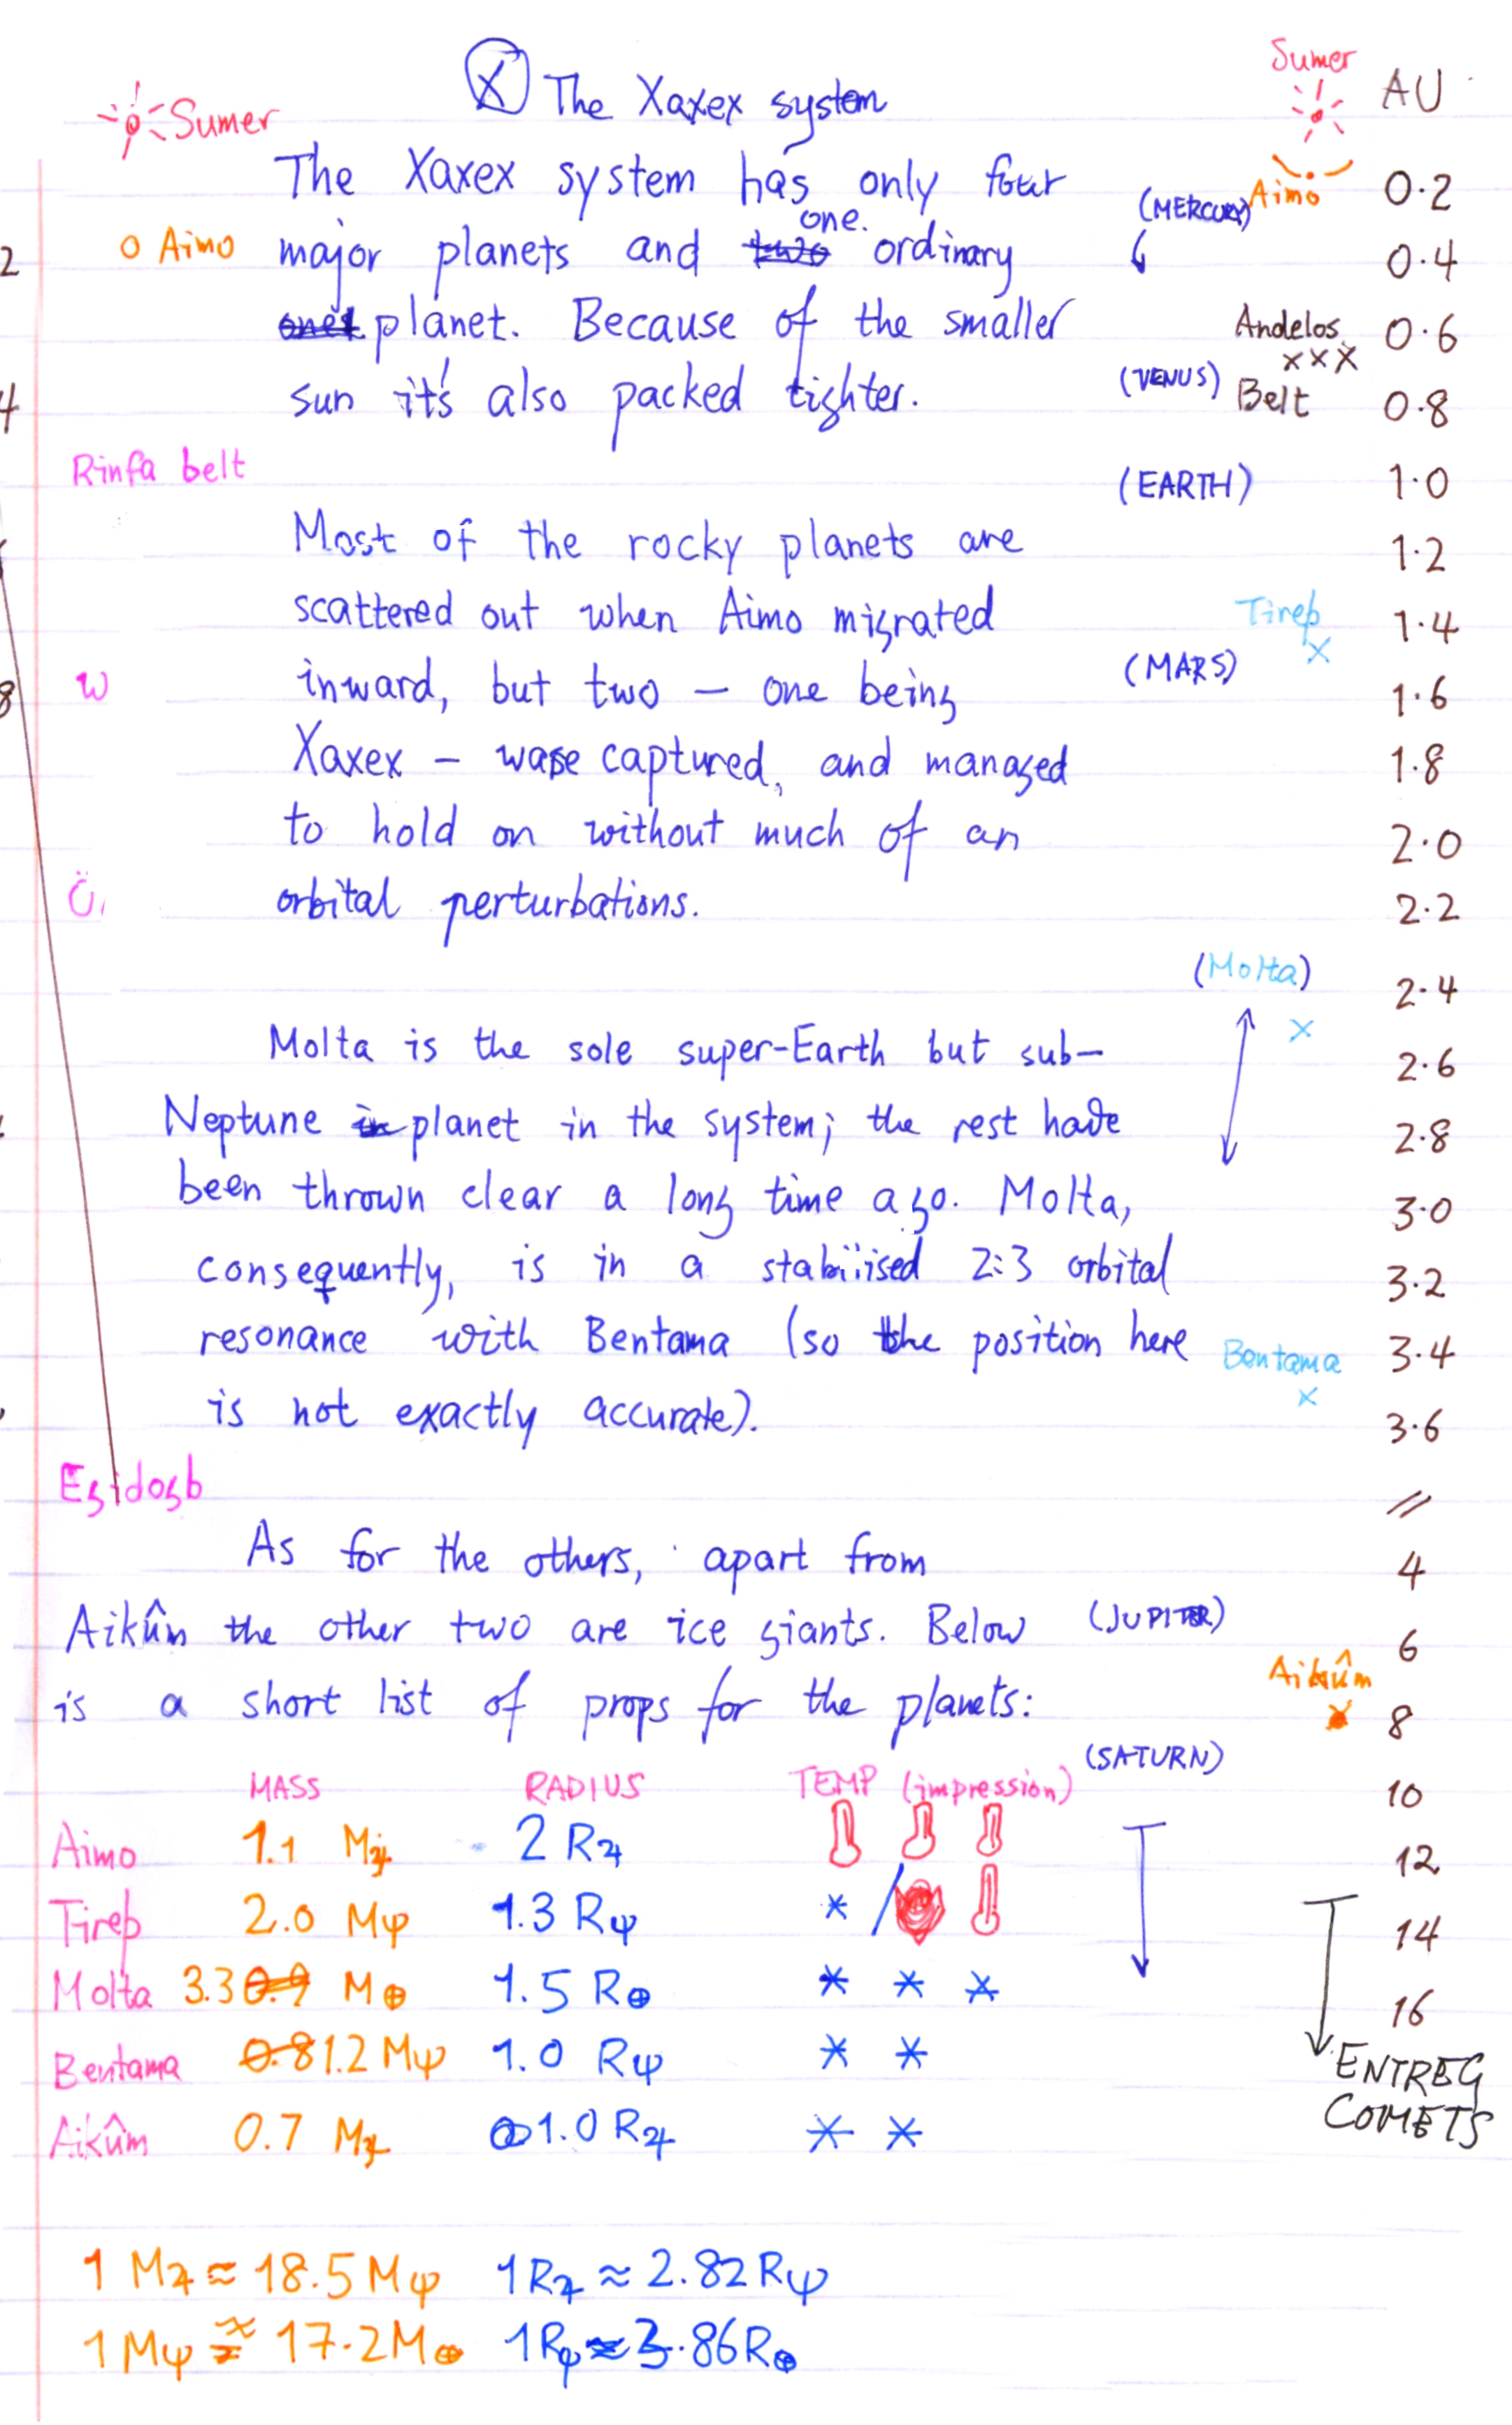 Ⓧ The Xaxex system
Sumer
The Xaxex system has only four
one.
Aimo
major planets and two ordinary
planet. Because of the smaller
sun it's also packed tighter.
Rinfa belt
Most of the rocky planets are
scattered out when Aimo migrated
inward, but two – one being
W
Xaxex – were captured, and managed
to hold on without much of an
orbital perturbations.
Molta is the sole super-Earth but sub-
Neptune in planet in the system; the rest have
been thrown clear a long time ago. Molta,
consequently, is in a stabilised 2:3 orbital
resonance with Bentama (so the position here
is not exactly accurate).
Egidogb
As for the others, apart from
Aikûm the other two are ice giants. Below
is a short list of props for the planets:
MASS RADIUS TEMP (impression)
Aimo 1.1 M♃ 2 R♃
Tirep 2.0 Mψ 1.3 Rψ * /
Molta 3.3 0.9 M⊕ 1.5 R⊕ * * *
Bentama 0.8 1.2 Mψ 1.0 Rψ * *
Aikûm 0.7 M♃ 1.0 R♃ * *
1 M♃ ≈ 18.5 Mψ 1R♃ ≈ 2.82 Rψ
1 Mψ ≈ 17.2 M⊕ 1Rψ ≈ 3.86 R⊕
Sumer AU
(MERCURY) Aimo 0.2
0.4
Andelos xxx 0.6
(VENUS) Belt 0.8
(EARTH) 1.0
1.2
Tirep x 1.4
(MARS) 1.6
1.8
2.0
2.2
(Molta) x 2.4
2.6
2.8
3.0
3.2
Bentama x 3.4
3.6
//
4
(JUPITER) 6
Aikûm 8
(SATURN) 10
12
14
16
ENTREG
COMETS
2
4
8